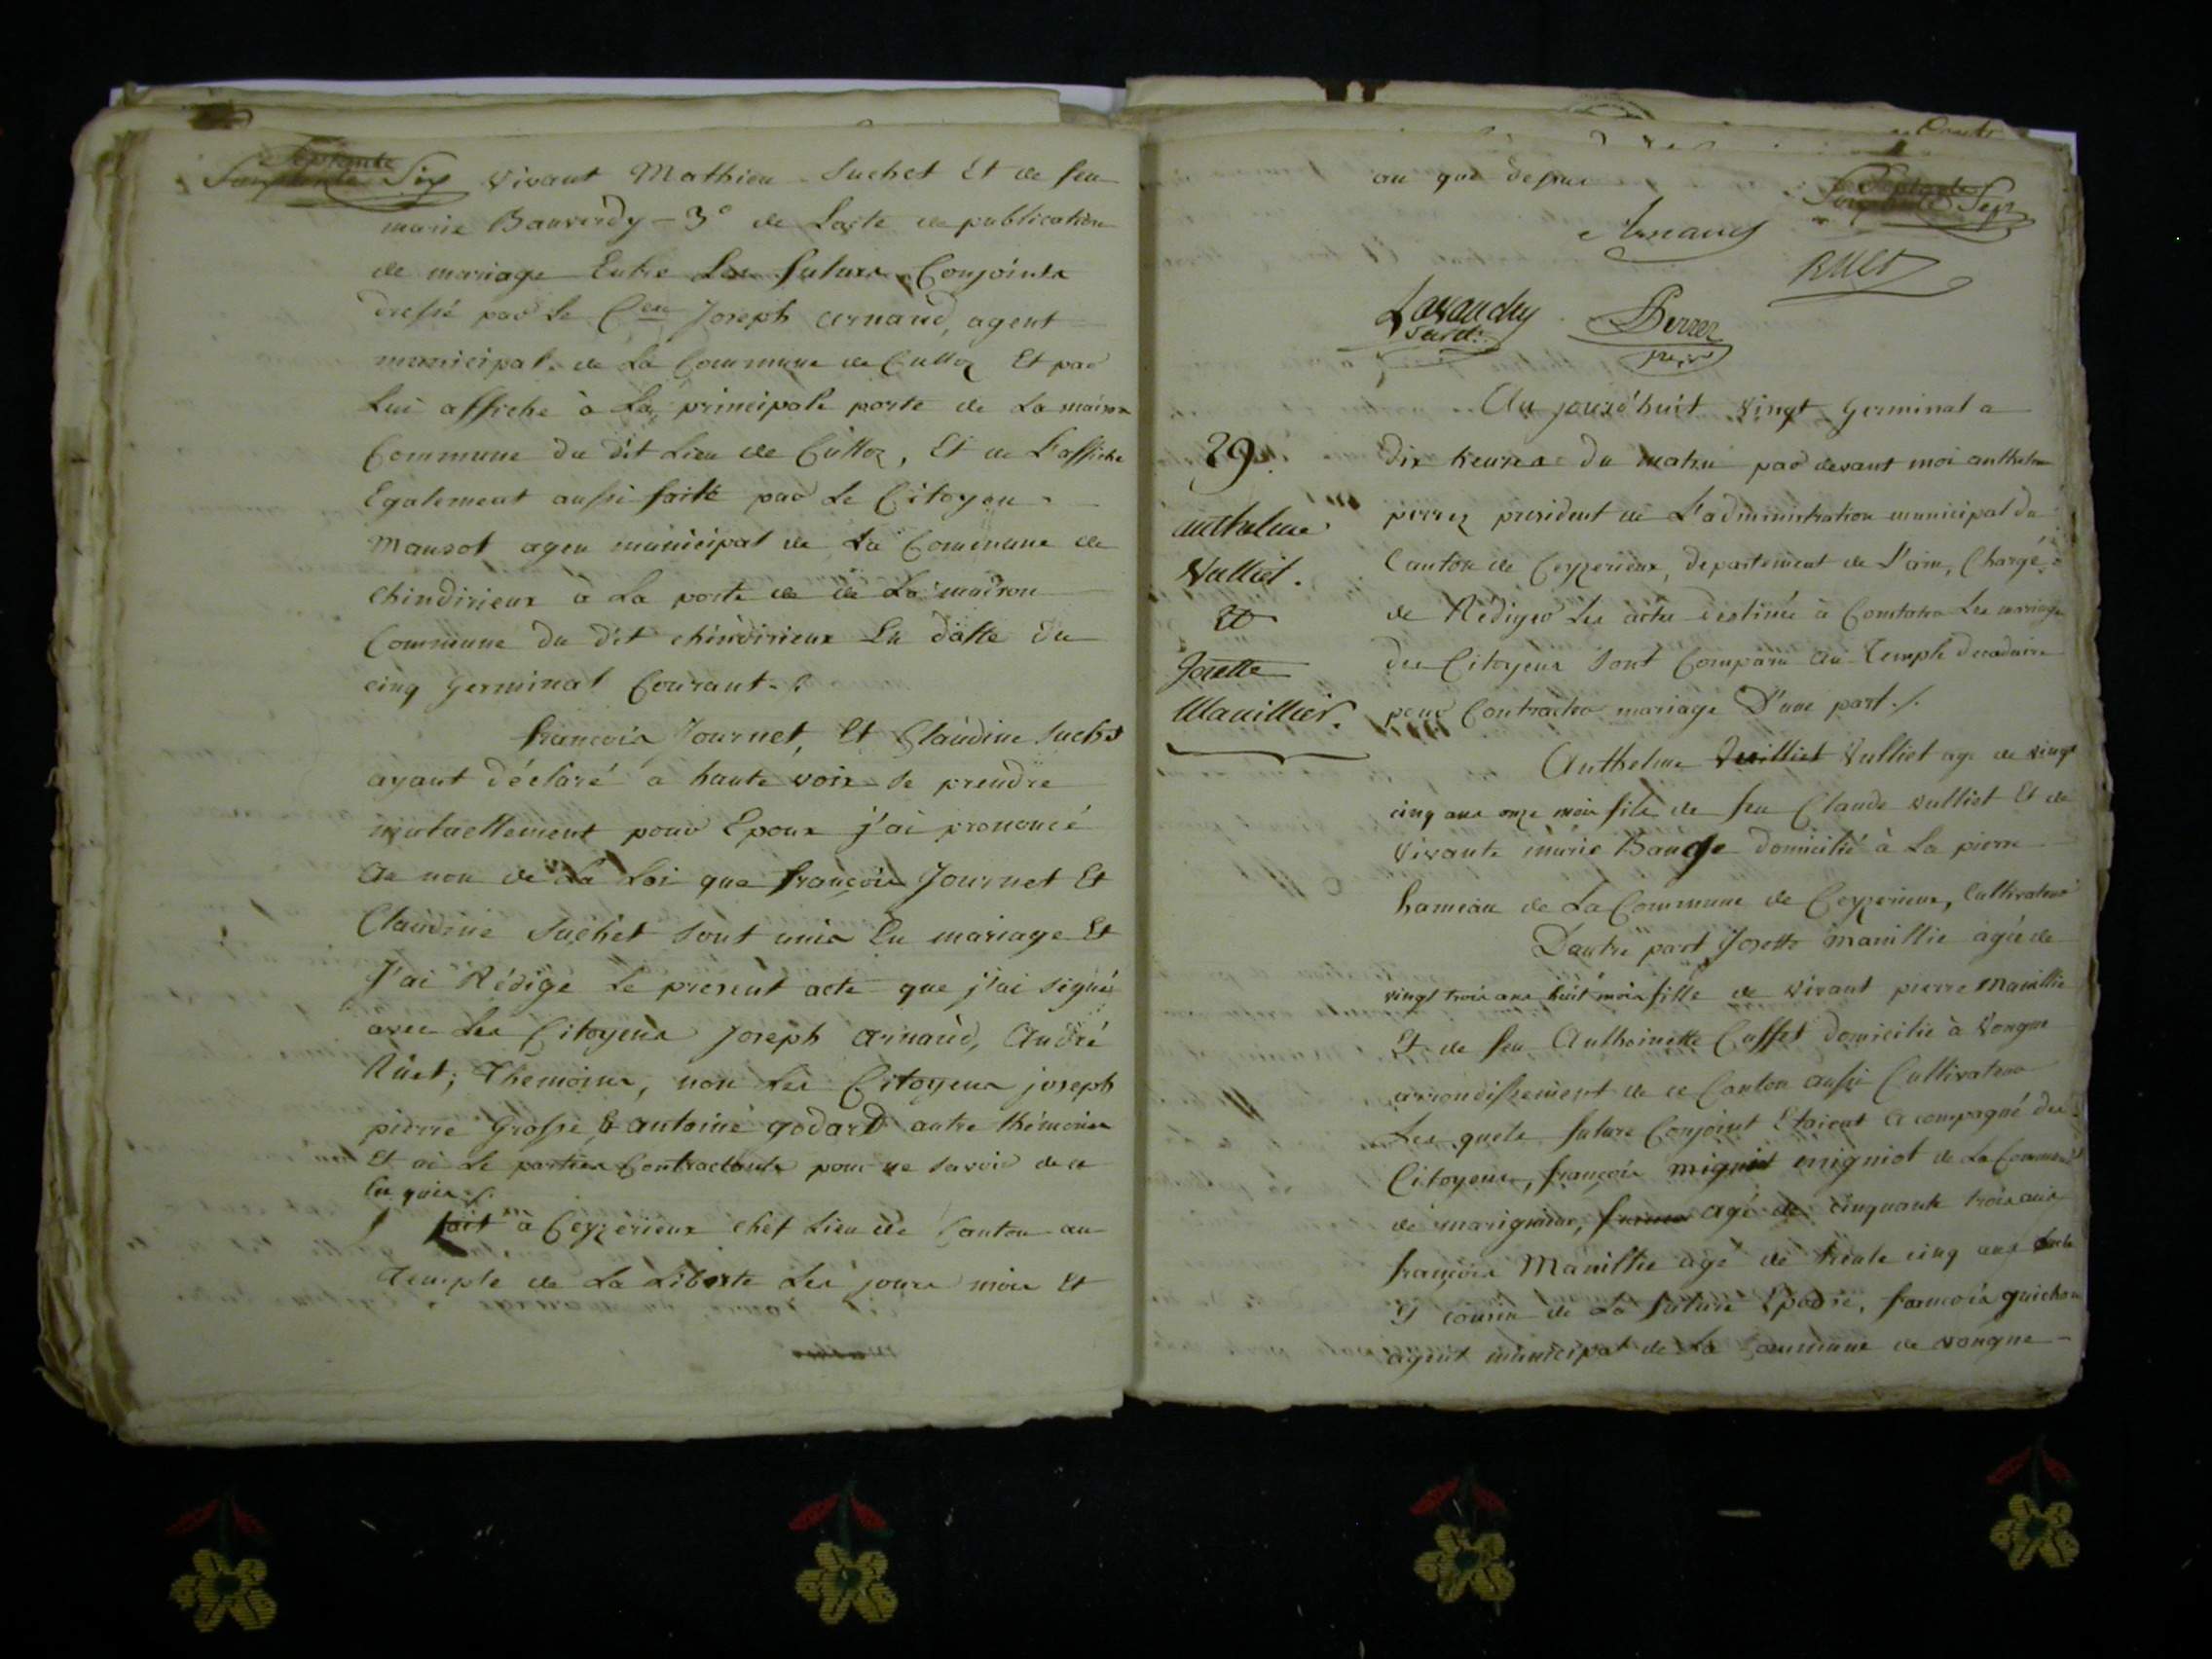 Septante
Six vivant Mathieu Suchet Et de feu
marie Bauverdy - 3° de Lacte de publication
de mariage Entre Les futurs Conjoints
dressé par le Cen Joseph arnaud, agent
municipal de La Commune de Culloz Et par
Lui affiche à La principale porte de La maison
Commune du dit Lieu de Culloz, Et de L'affiche
Egalement aussi faite par Le Citoyen
Mansot agen municipal de La Commune de
chindirieux à La porte de de La maison
Commune du dit chindirieux En datte du
cinq germinal Courant ./.
françois Journet, Et Claudine Suchet
ayant déclaré a haute voix se prendre
mutuellement pour Epoux j'ai prononcé
au nom de La Loi que françois Journet Et
Claudine Suchet sont unis En mariage Et
J'ai Rédigé Le present acte que j'ai signé
avec Les Citoyens Joseph arnaud, André
Rüet, Themoins, non Les Citoyens joseph
pierre grosse & antoine godard autre thémoins
Et ni Le parties Contractants pour ne savoir de ce
En quis ./.
fait à Ceyzerieux chef Lieu de Canton au
Temple de La Liberte Les jours mois Et
an que dessus
Septante
Sept
Arnaud
RUET
Lavanchy
Secrét.
Perrer
président
29.
anthelme
Vulliet.
Et
Josette
Manillier.
Au jourd'huit vingt germinal a
dix heures du matin par devant moi anthelme
perrez president de L'administration municipal du
Canton de Ceyzerieux, departement de L'ain, Chargé
de Rédiger Les actes destinés à Constater Les mariages
des Citoyens sont Comparu au Temple decadaire
pour Contracter mariage D'une part ./.
Anthelme Vuilliet Vulliet age de vingt
cinq ans onze mois fils de feu Claude vulliet Et de
vivante marie Bauge domicilié à La pierre
hameau de La Commune de Ceyzerieux, Cultivateur
Dautre part Josette manillie agée de
vingt trois ans huit mois fille de vivant pierre Manillie
Et de feu Anthoinette Cusset domicilie à Vongne
arrondissement de ce Canton aussi Cultivateur
Les quels futurs Conjoint Etaient acompagné des
Citoyens, françois migniot migniot de La Commune
de marignieux, agé de cinquante trois ans
françois Manillie agé de trente cinq ans
Et cousin de La future Epouse, françois guichon
agent municipal de La Commune de vongne